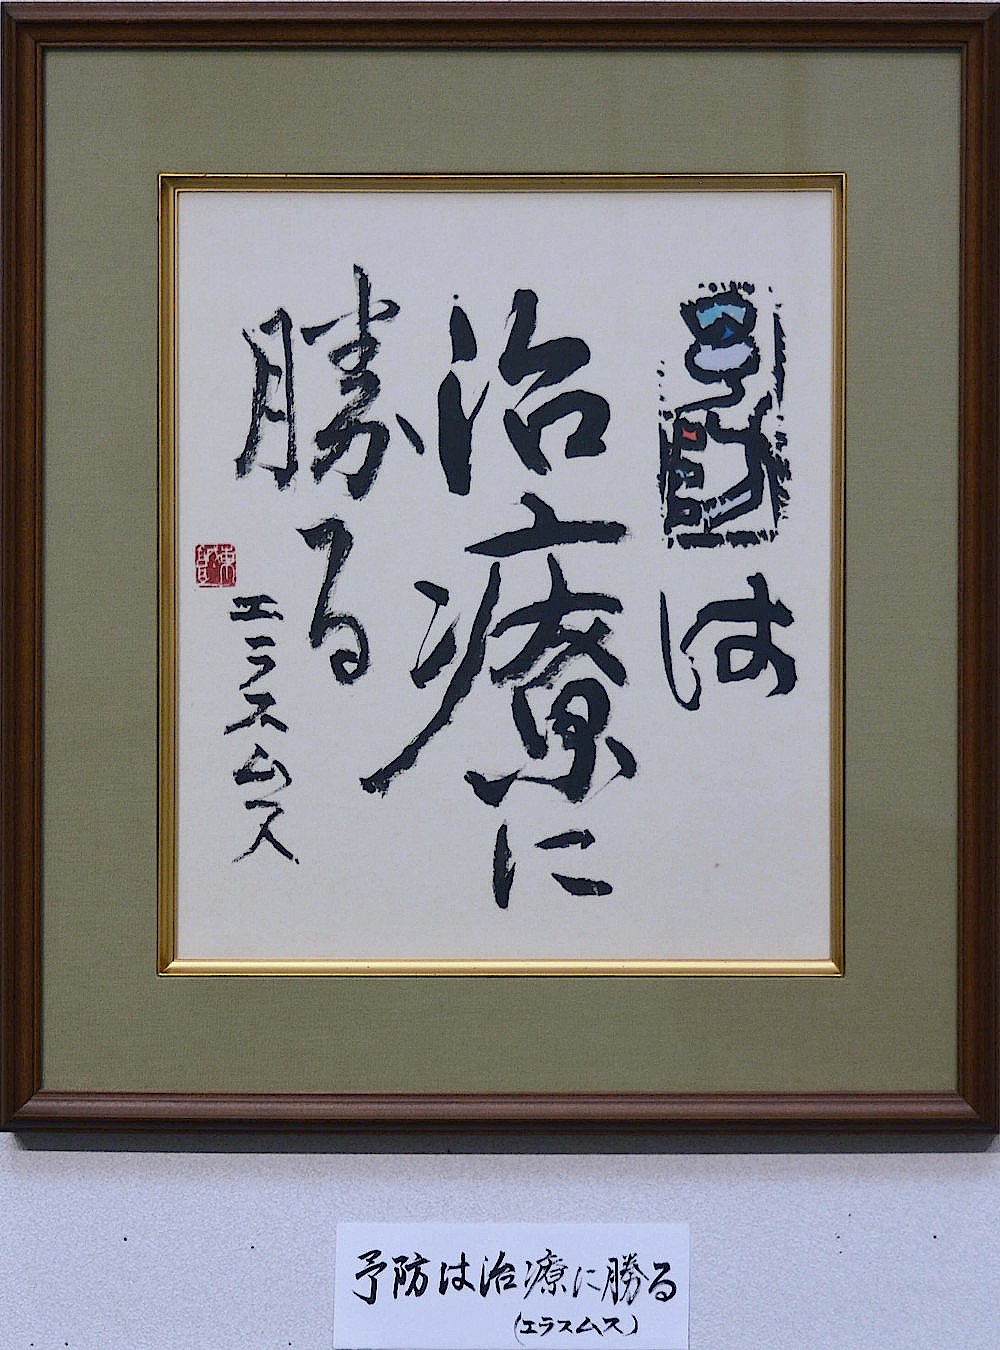 予防は
治療に
勝る
エラスムス
予防は治療に勝る
(エラスムス)